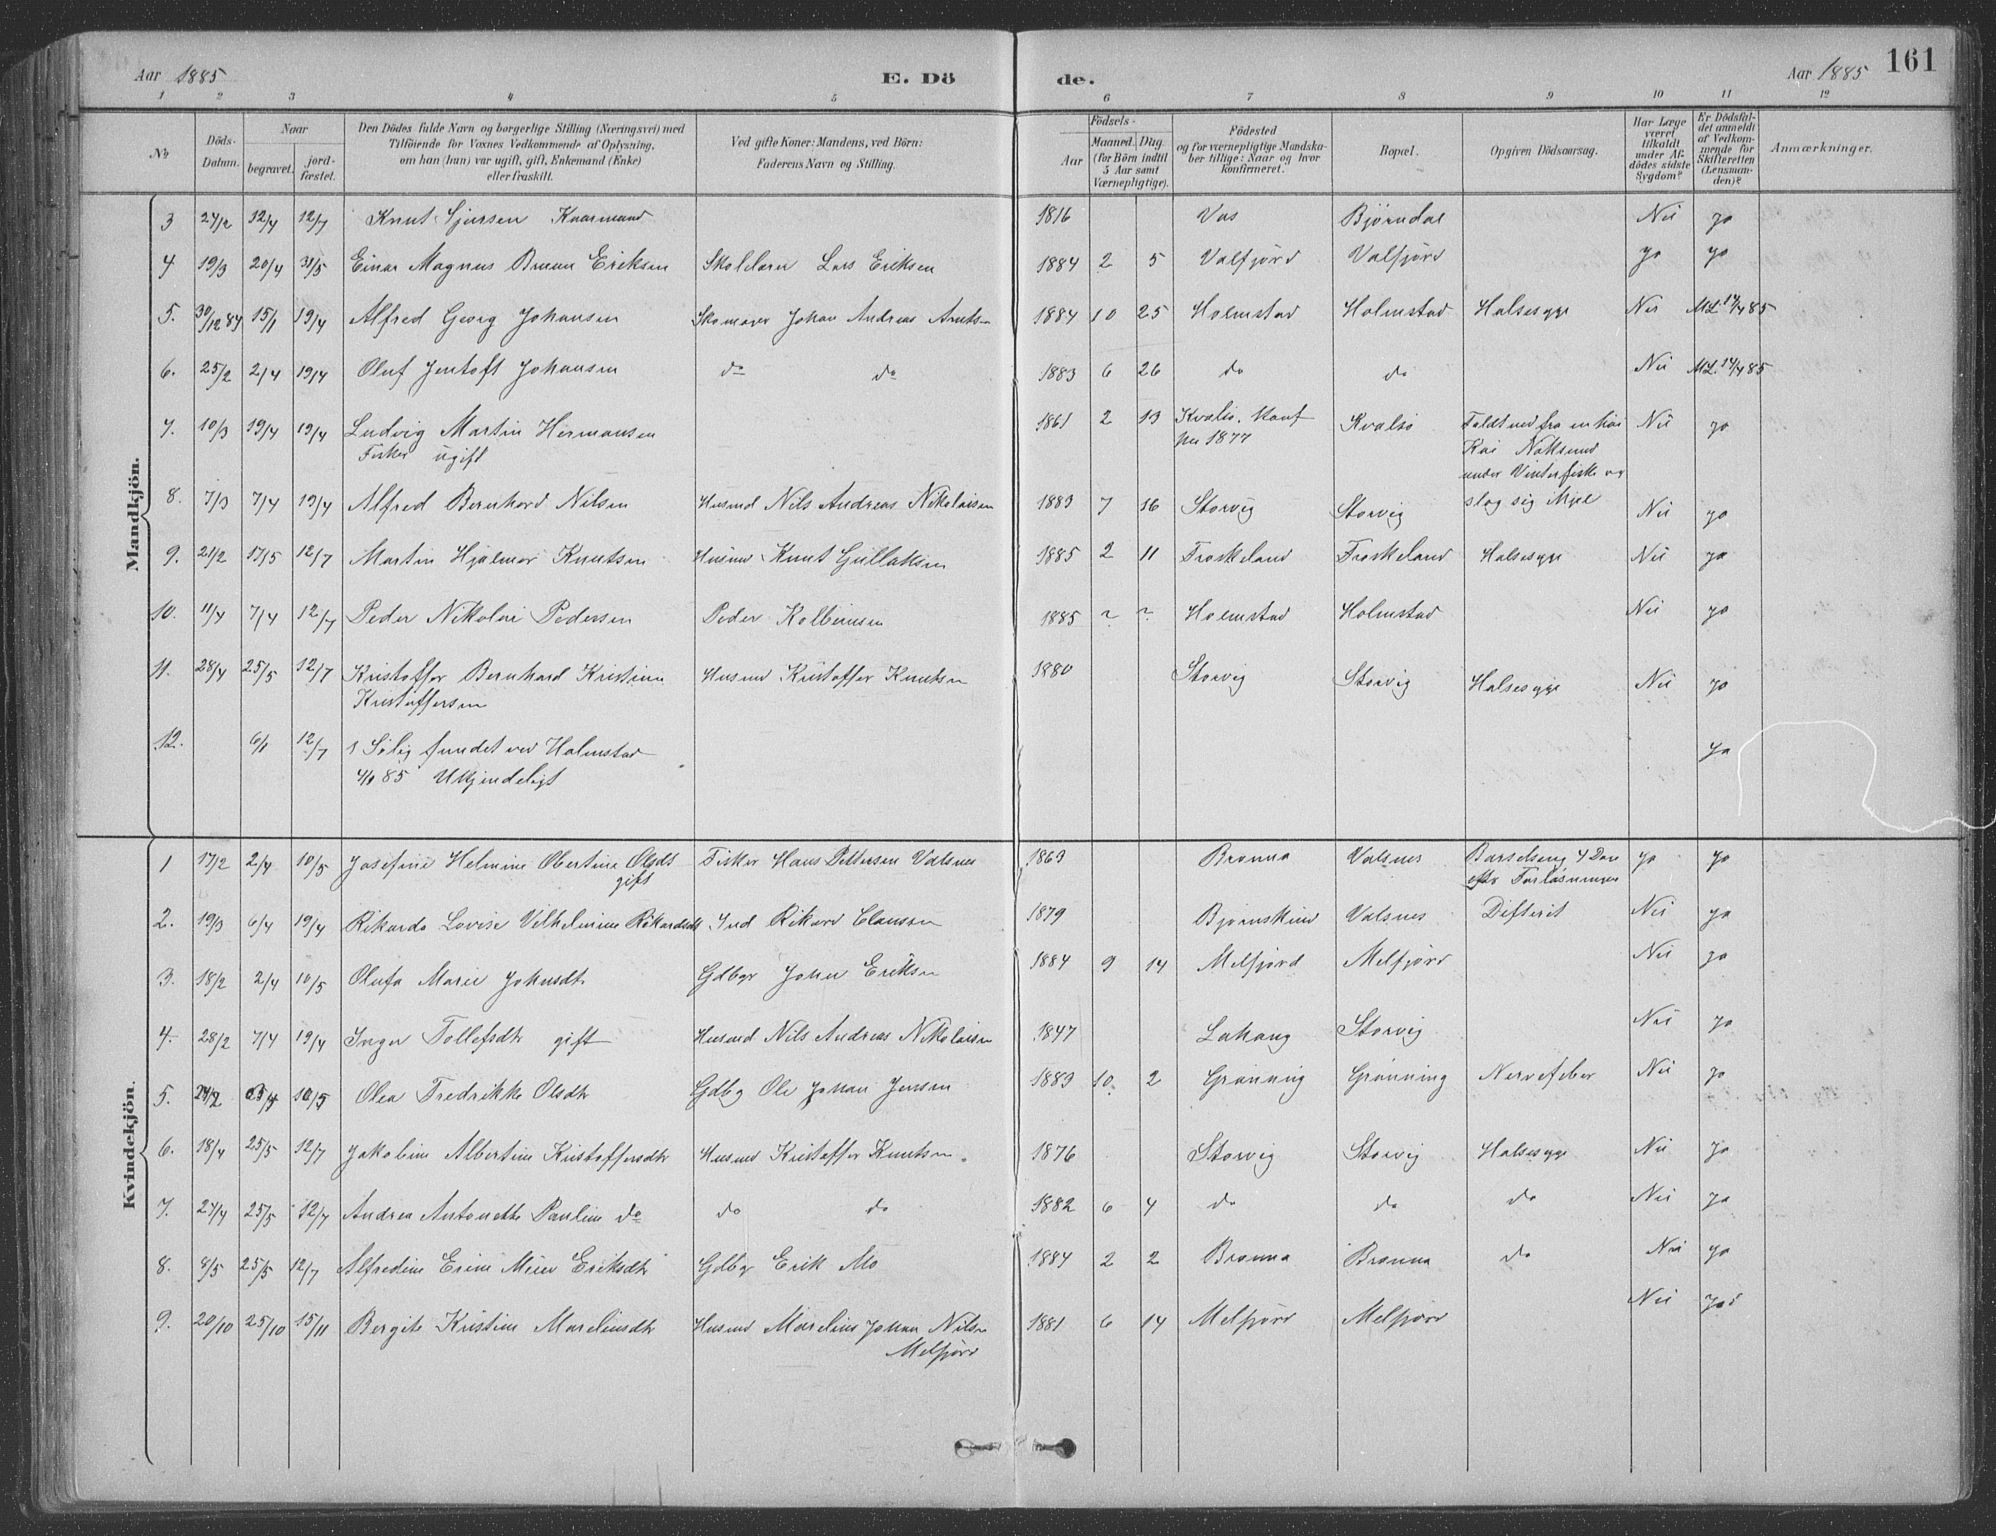 Aar 1885 E. Dö de. Aar 1885 161
1 2 3 4 5 6 7 8 9 10 11 12
No Döds-Datum. Naar begravet. jordfæstet. Den Dödes fulde Navn og borgerlige Stilling (Næringsvei) med Tilföiende for Voxnes Vedkommende af Oplysning, om han (hun) var ugift, gift, Enkemand (Enke) eller fraskilt. Ved gifte Koner: Mandens, ved Börn: Faderens Navn og Stilling. Födsels- Aar Maaned. Dag. (for Börn indtil 5 Aar samt Værnepligtige). Födested og for værnepligtige Mandskaber tillige: Naar og hvor konfirmeret. Bopæl. Opgiven Dödsaarsag. Har Læge været tilkaldt under Afdödes sidste Sygdom? Er Dödsfaldet anmeldt af Vedkommende for Skifteretten (Lensmanden)? Anmærkninger.
Mandkjön.
3 24/2 12/4 12/7 Knut Sjursen Kaarmand 1816 Vos Bjørndal Nei ja
4 19/3 20/4 31/5 Einar Magnus Bruun Eriksen Skolelærer Lars Eriksen 1884 2 5 Valfjord Valfjord ja ja
5. 30/12 84 15/1 19/4 Alfred Georg Johansen Skomager Johan Andreas Arntsen 1884 10 25 Holmstad Holmstad Halsesyge Nei ML. 14/4 85
6. 25/2 2/4 19/4 Oluf Jentoft Johansen do do 1883 6 26 do do Nei ML. 14/4 85
7. 10/3 19/4 19/4 Ludvig Martin Hermansen 1861 2 13 Kvalsø. Konf Kvalsø Faldt ned fra en høi Nei ja
Fisker ugift 1877 Kai
under Vinterfiske og
8. 7/3 7/4 19/4 Alfred Bernhard Nilsen Husmd Nils Andreas Nikolaisen 1883 7 16 Storvig Storvig slog sig ihjel Nei ja
9. 21/2 17/5 12/7 Martin Hjalmar Knutsen Husmd Knut Gullaksen 1885 2 11 Froskeland Froskeland Halsesyge Nei ja
10. 11/4 7/4 12/7 Peder Nikolai Pedersen Peder Kolbeinsen 1885 ~ ~ Holmstad Holmstad Nei ja
11. 28/4 25/5 12/7 Kristoffer Bernhard Kristian Husmd Kristoffer Knutsen 1880 Storvig Storvig Halsesyge Nei ja
Kristoffersen
12. 12/7 1 Sølig fundet ved Holmstad ja
85 Ukjendeligt
Kvindekjön.
1 17/2 2/4 10/5 Josefine Helmine Obertine Olsdt Fisker Hans Dittersen Valsnes 1863 Brønna Valsnes Barselseng 4 Dage ja ja
gift efter Forløsningen
2. 19/3 6/4 19/4 Rikarda Lovise Vilhelmine Rikardsdt Ind Rikard Clausen 1879 Bjørnskind Valsnes Difterit Nei ja
3. 18/2 2/4 10/5 Olufa Marie Johnsdtr Gdbgr John Eriksen 1884 9 14 Melfjord Melfjord Nei ja
4. 28/2 7/4 19/4 Inger Tollefsdtr gift Husmd Nils Andreas Nikolaisen 1847 Lakang Storvig Nei ja
5. 24/2 10/5 Olea Fredrikke Olsdtr Gdbg Ole Johan Jensen 1883 10 2 Grønning Grønning Nervefeber Nei ja
6. 18/4 25/5 12/7 Jakobine Albertine Kristoffersdtr Husmd Kristoffer Knutsen. 1876 Storvig Storvig Halsesyge Nei ja
7. 24/4 25/5 12/7 Andrea Antonette Pauline do do do 1882 6 4 do do do Nei ja
8. 8/5 25/5 12/7 Alfredine Erine Meier Eriksdtr Gdbgr Erik Mo 1884 2 2 Brønna Brønna do Nei ja
9. 20/10 25/10 15/11 Bergite Kristine Mareliusdtr Husmd Marelius Johan Nilsen 1881 6 14 Melfjord Melfjord Nei ja
Melfjord